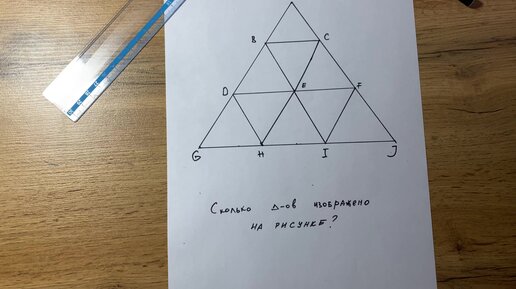 B C
D E F
G H I J
Сколько Δ-ов изображено
на рисунке?